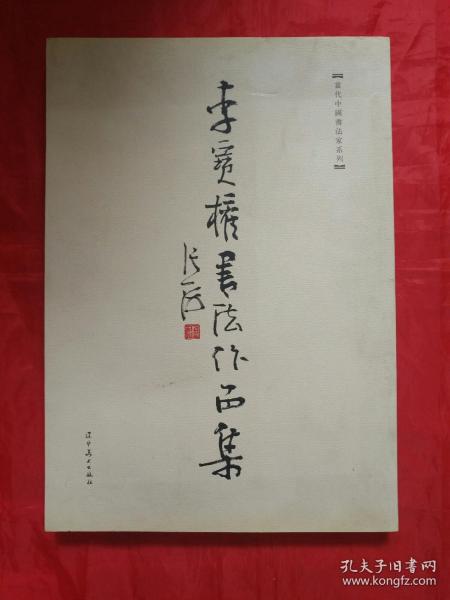 【當代中國書法家系列】
李寶權書法作品集
辽宁美术出版社
孔夫子旧书网
www.kongfz.com